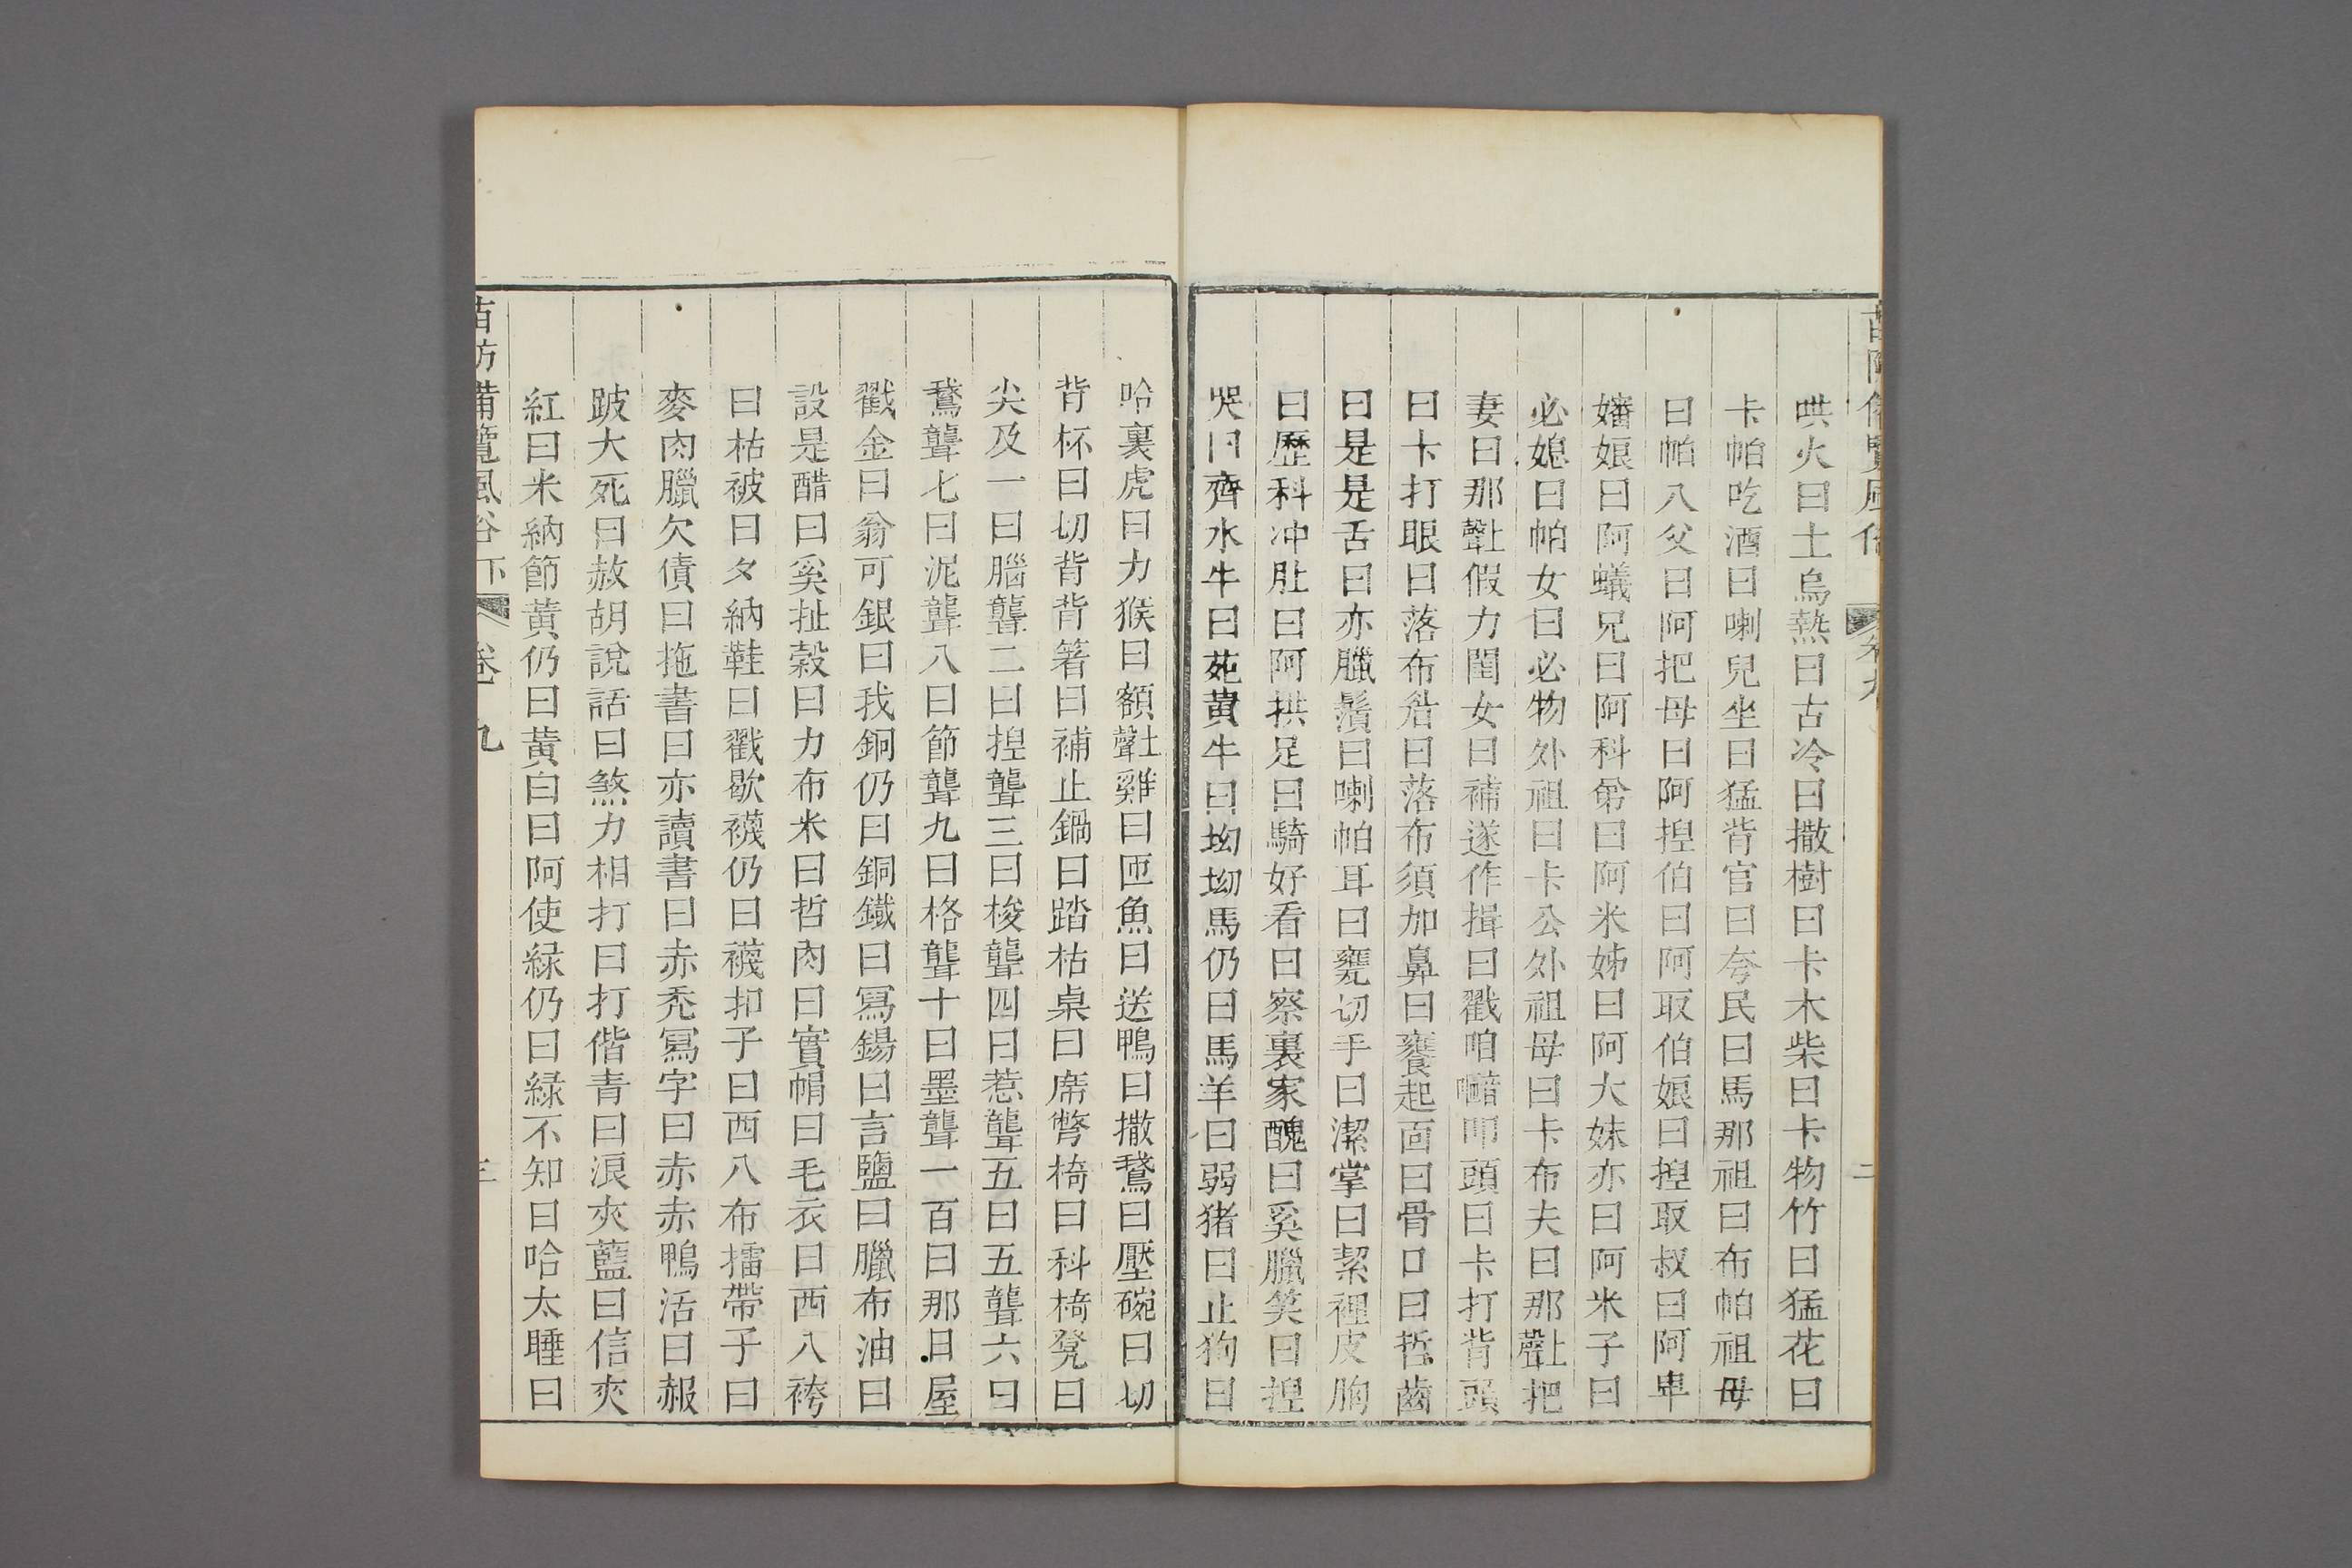 哄火曰土烏熱曰古冷曰撒樹曰卡木柴曰卡物竹曰猛花曰
卡帕吃酒曰喇兒坐曰猛背官曰夸民曰馬那祖曰布帕祖母
曰帕八父曰阿把母曰阿揑伯曰阿取伯娘曰揑取叔曰阿卑
嬸娘曰阿蟻兄曰阿科弟曰阿米姊曰阿大妹亦曰阿米子曰
必媳曰帕女曰必物外祖曰卡公外祖母曰卡布夫曰那上聲把
妻曰那上聲假力閨女曰補遂作揖曰戳帕叩頭曰卡打背頭
曰卡打眼曰落布眉曰落布須加鼻曰饔起面曰骨口曰哲齒
曰是是舌曰亦臘鬚曰喇帕耳曰甕切手曰潔掌曰絜裡皮胸
曰歷科冲肚曰阿拱足曰騎好看曰察裏家醜曰奚臘笑曰揑
哭曰齊水牛曰苑黄牛曰坳坳馬仍曰馬羊曰弱猪曰止狗曰
哈裏虎曰力猴曰額上聲雞曰匝魚曰送鴨曰撒鵞曰壓碗曰切
背杯曰切背背箸曰補止鍋曰踏枯桌曰席幣椅曰科椅凳曰
尖及一曰腦聾二曰揑聾三曰梭聾四曰惹聾五曰五聾六曰
鵞聾七曰泥聾八曰節聾九曰格聾十曰墨聾一百曰那曰屋
戳金曰翁可銀曰我銅仍曰銅鐵曰冩錫曰言鹽曰臘布油曰
設是醋曰奚扯穀曰力布米曰哲肉曰實帽曰毛衣曰西八袴
曰枯被曰夕納鞋曰戳歇襪仍曰襪扣子曰西八布擂帶子曰
麥肉臘欠債曰拖書曰亦讀書曰赤禿冩字曰赤赤鴨活曰赧
跛大死曰赦胡說話曰煞力相打曰打偕青曰浪夾藍曰信夾
紅曰米納節黄仍曰黄白曰阿使緑仍曰緑不知曰哈太睡曰
苗防備覽風俗下 卷九 三